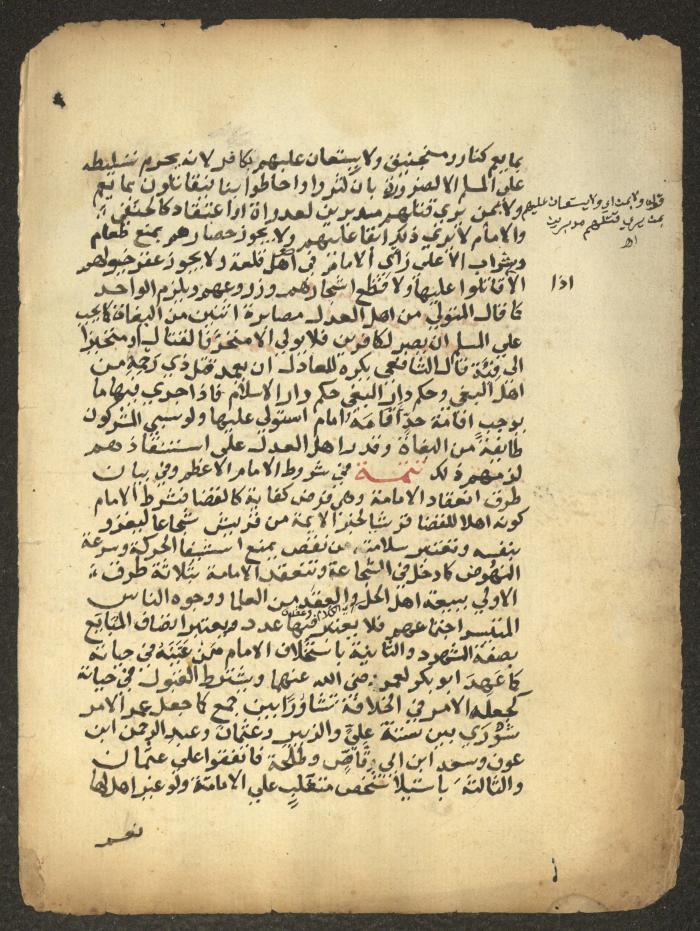 بما يعم كنار ومنجنيق ولا يستعان عليهم بكافر لانه يحرم تسليطه
علي المسلم الا لضرورة بان كثروا واحاطوا بنا لنقاتلون بما يعم
ولا بمن يري قتلهم مدبرين لعداوة او اعتقاد كالحنفي
والامام لا يري ذلك ابقا عليهم ولا يجوز حصارهم بمنع طعام
وشراب الا علي راي الامام في اهل قلعة ولا يجوز عقر خيولهم
الا قاتلوا عليها ولا قطع اشجارهم وزروعهم ويلزم الواحد
كا قال المتولي من اهل العدل مصابرة اثنين من البغاة كما يجب
علي المسلم ان يصبر لكافرين فلا يولي الا متحرفا لقتال او متحيزا
الي فئة قال الشافعي يكره للعادل ان يعمد قتل ذي رحمه من
اهل البغي وحكم دار البغي حكم دار الاسلام فاذا جري فيها ما
يوجب اقامة حد اقامه امام استولي عليها ولو سبي المشركون
طايفة من البغاة وقدر اهل العدل علي استنقاذهم
لزمهم ذلك تتمة في شروط الامام الاعظم وفي بيان
طرق انعقاد الامامة وهي فرض كفاية كالقضا فشرط الامام
كونه اهلا للقضا قرشيا لخبر الايمة من قريش شجاعا ليغزو
بنفسه وتعتبر سلامته من نقص يمنع استيفا الحركة وسرعة
النهوض كا دخل في الشجاعة وتنعقد الامامة بثلاثة طرق
الاولي ببيعة اهل الحل والعقد من العلما ووجوه الناس
المتيسر اجتماعهم فلا يعتبر فيها عدد ويعتبر اتصاف المبايع
بصفة الشهود والثانية باستخلاف الامام من عينه في حياته
كا عهد ابو بكر لعمر رضي الله عنهما ويشترط القبول في حياته
كجعله الامر في الخلافة تشاورا بين جمع كا جعل عمر الامر
شوري بين ستة علي والزبير وعثمان وعبد الرحمن ابن
عوف وسعد ابن ابي وقاص وطلحة فاتفقوا علي عثمان
والثالثة باستيلا شخص متغلب علي الامامة ولو غير اهل لها
نعم
قوله ولا بمن اي ولا يستعان عليهم
بمن يري قتلهم مدبرين
اه
اذا